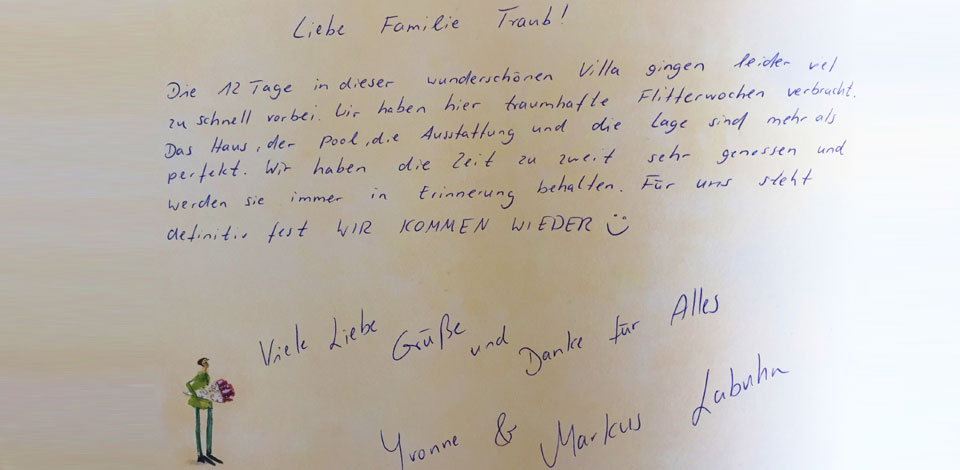 Liebe Familie Traub!
Die 12 Tage in dieser wunderschönen Villa gingen leider vel
zu schnell vorbei. Wir haben hier traumhafte Flitterwochen verbracht.
Das Haus, der Pool, die Ausstattung und die Lage sind mehr als
perfekt. Wir haben die Zeit zu zweit sehr genossen und
werden sie immer in Erinnerung behalten. Für uns steht
definitiv fest WIR KOMMEN WIEDER
Viele Liebe Grüße und Danke für Alles
Yvonne & Markus Labuhn